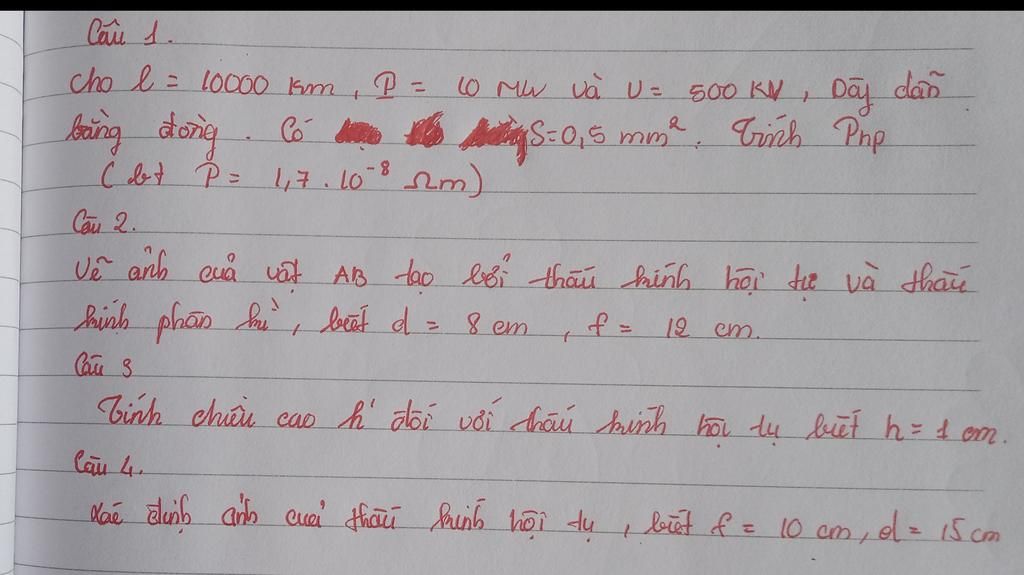 Câu 1.
cho l = 10000 Km, P = 10 MW và U = 500 KV, Dây dẫn
bằng đồng. Có S=0,5 mm². Tính Php
(bt P = 1,7.10⁻⁸ Ωm)
Câu 2.
Vẽ ảnh của vật AB tạo bởi thấu kính hội tụ và thấu
kính phân kì, biết d = 8 cm, f = 12 cm.
Câu 3
Tính chiều cao h' đối với thấu kính hội tụ biết h = 1 cm.
Câu 4.
Xác định ảnh của thấu kính hội tụ, biết f = 10 cm, d = 15 cm